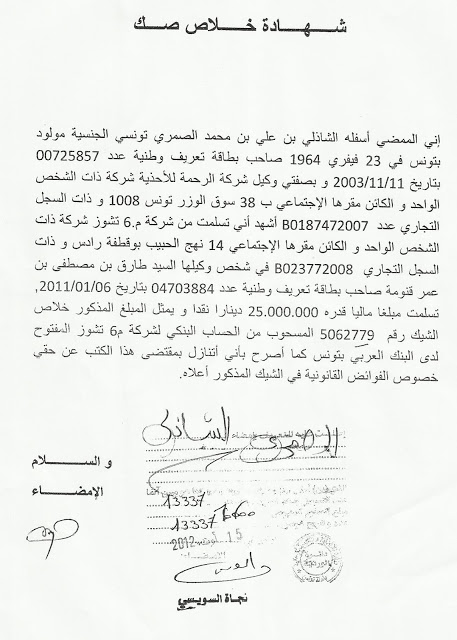 شـــهـــادة خـــلاص صـــك
إني الممضي أسفله الشاذلي بن علي بن محمد الصمري تونسي الجنسية مولود
بتونس في 23 فيفري 1964 صاحب بطاقة تعريف وطنية عدد 00725857
بتاريخ 2003/11/11 و بصفتي وكيل شركة الرحمة للأحذية شركة ذات الشخص
الواحد و الكائن مقرها الإجتماعي ب 38 سوق الوزر تونس 1008 و ذات السجل
التجاري عدد B0187472007 أشهد أني تسلمت من شركة م.6 تشوز شركة ذات
الشخص الواحد و الكائن مقرها الإجتماعي 14 نهج الحبيب بوقطفة رادس و ذات
السجل التجاري B023772008 في شخص وكيلها السيد طارق بن مصطفى بن
عمر قنومة صاحب بطاقة تعريف وطنية عدد 04703884 بتاريخ 2011/01/06,
تسلمت مبلغا ماليا قدره 25.000.000 دينارا نقدا و يمثل المبلغ المذكور خلاص
الشيك رقم 5062779 المسحوب من الحساب البنكي لشركة م6 تشوز المفتوح
لدى البنك العربي بتونس كما أصرح بأني أتنازل بمقتضى هذا الكتب عن حقي
خصوص الفوائض القانونية في الشيك المذكور أعلاه.
الصمري الشاذلي
و الســـلام
الإمضـــاء
13337
13337
15 أوت 2012
نجاة السويسي